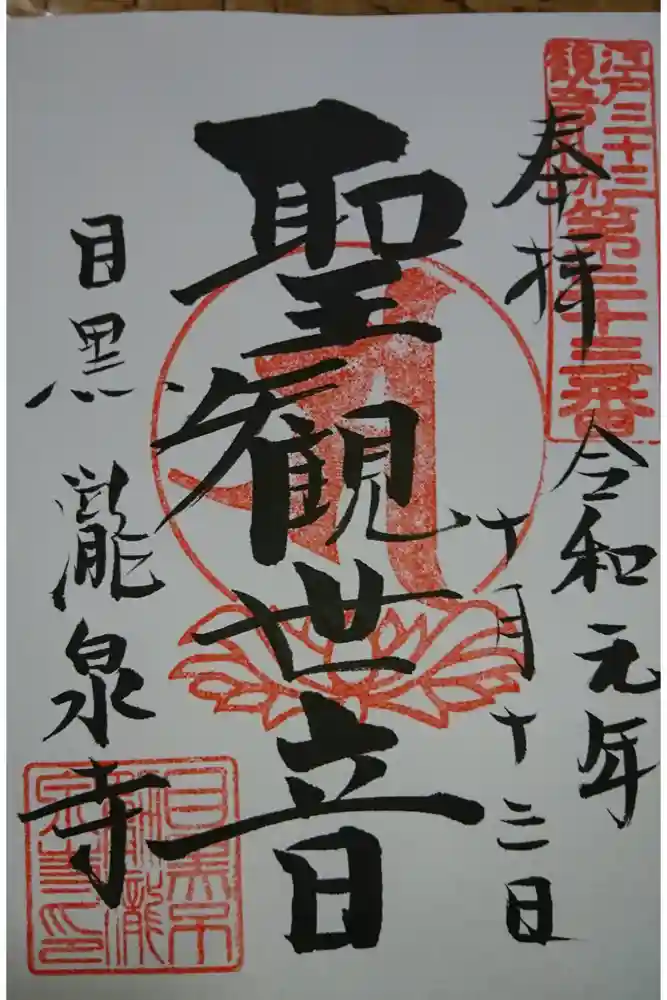 江戸三十三
観音札所第三十三番
奉拝
令和元年
十月十三日
聖観世音
目黒 瀧泉寺